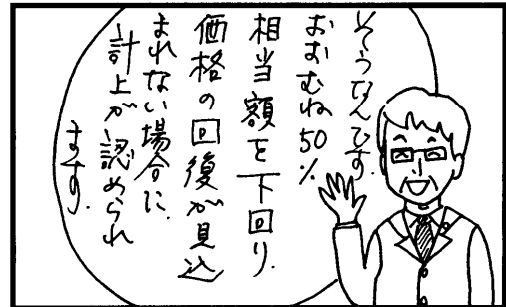 そうなんです。
おおむね50%
相当額を下回り、
価格の回復が見込
まれない場合に、
計上が認められ
ます。